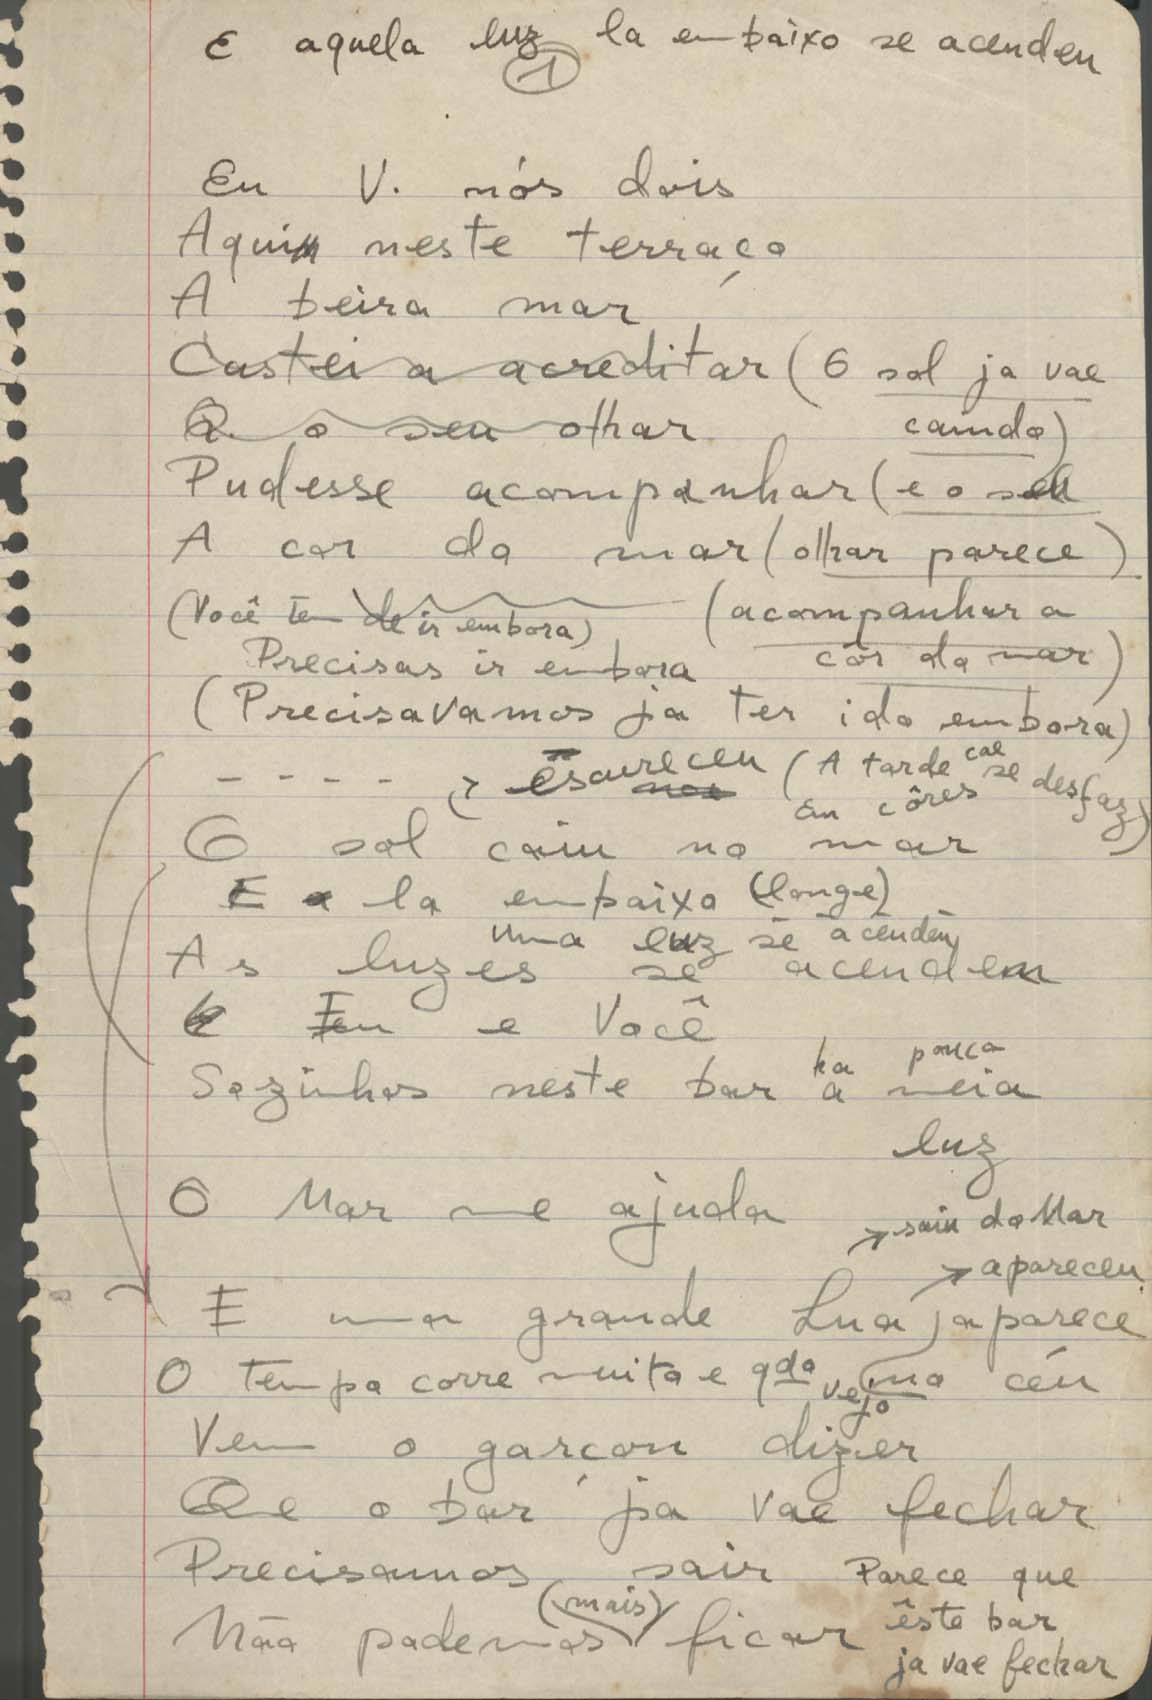 E aquela luz la embaixo se acendeu
1
Eu V. nós dois
Aqui neste terraço
A beira mar
Custei a acreditar (O sol ja vae
Q. o seu olhar caindo)
Pudesse acompanhar (e o seu
A cor do mar (olhar parece)
(Você tem de ir embora) (acompanhar a
Precisas ir embora côr do mar)
(Precisavamos ja ter ido embora)
- - - - escureceu (A tarde cae se desfaz)
em côres
O sol caiu no mar
E la embaixo (longe)
uma luz se acendeu
As luzes se acendem
E Eu e Você
ha pouca
Sozinhos neste bar a meia
luz
O Mar me ajuda
→ saiu do Mar
→ apareceu
E uma grande Lua japarece
O tempo corre muito e qdo vejo no céu
Vem o garçon dizer
Qe o bar ja vae fechar
Precisamos sair Parece que
Não podemos (mais) ficar êste bar
ja vae fechar